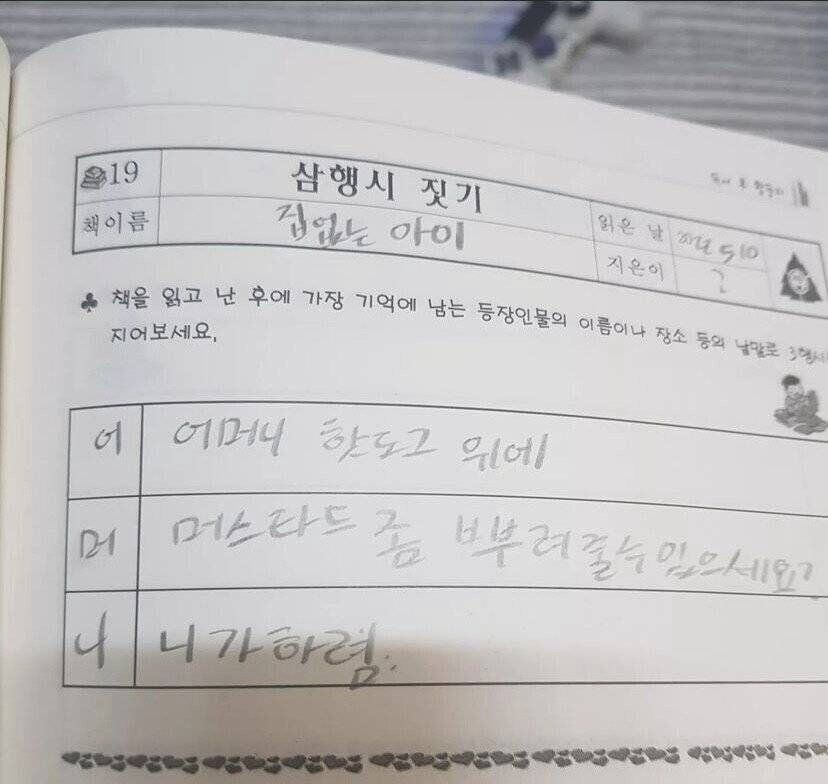 19
삼행시 짓기
책이름
집없는 아이
읽은 날
지은이
?
♣ 책을 읽고 난 후에 가장 기억에 남는 등장인물의 이름이나 장소 등의 낱말로 3행시
지어보세요.
어
어머니 핫도그 위에
머
머스타드 좀 뿌려줄수있으세요?
니
니가하렴.